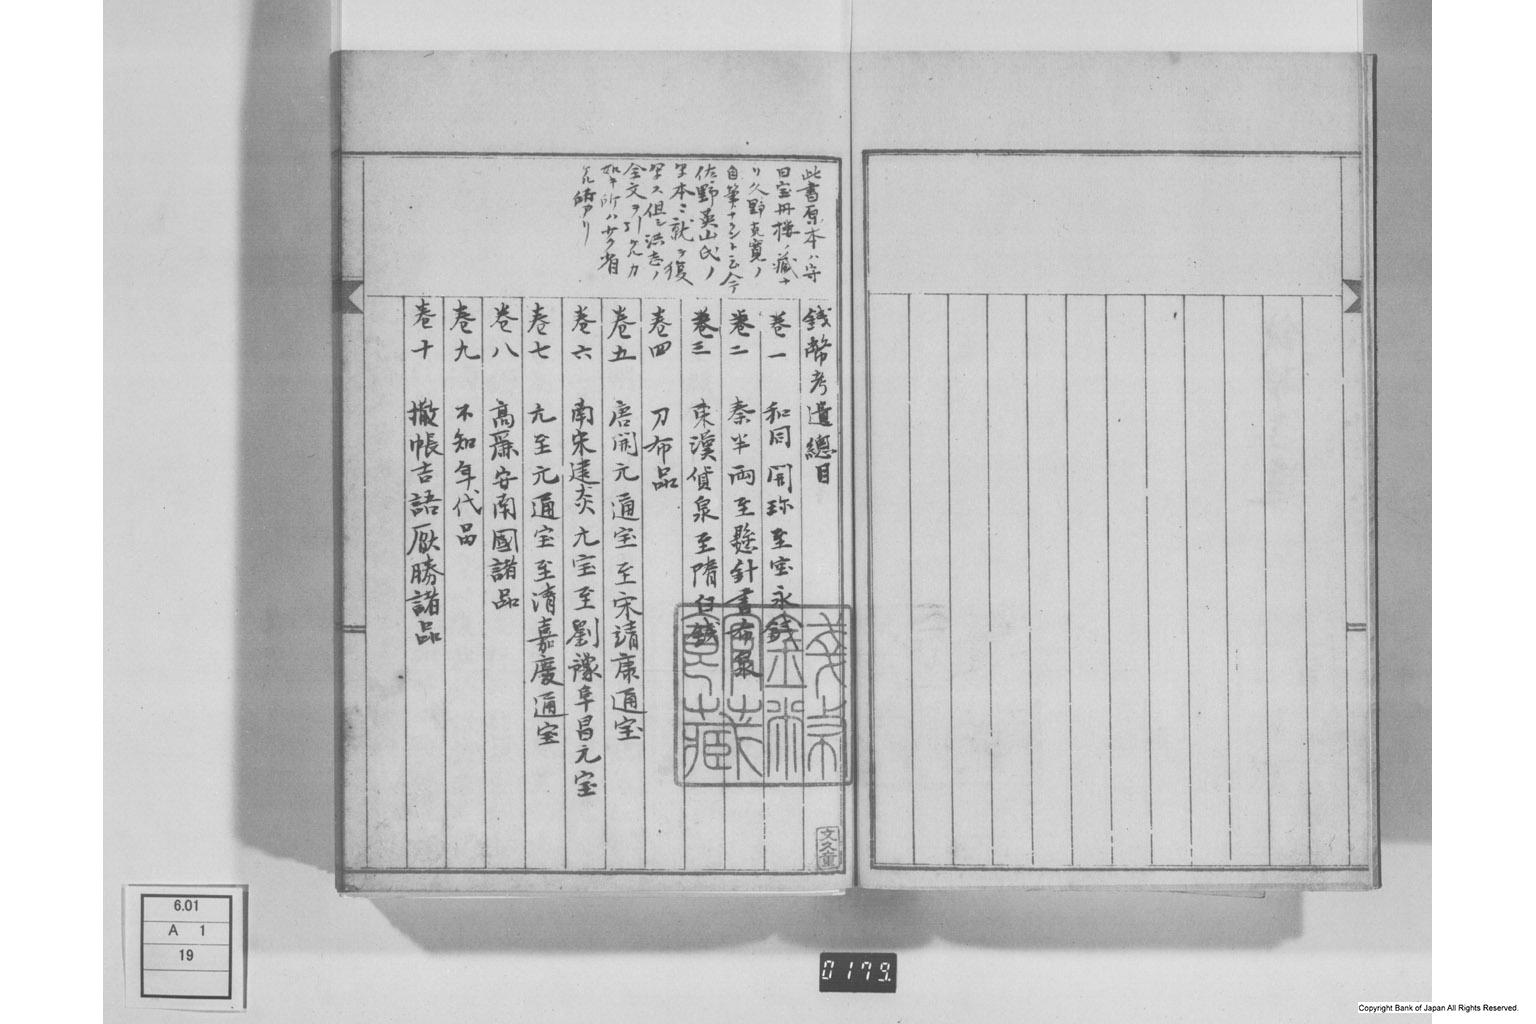 此書原本ハ守
田宝丹楼ノ蔵ナ
リ久野克寛ノ
自筆ナラント云今
佐野英山氏ノ
写本ニ就テ復
写ス但シ洪志ノ
全文ヲ引ケルカ
如キ所ハ
銭幣考遺總目
巻一 和同開珎至宝永銭
巻二 秦半両至懸針書布泉
巻三 東漢貨泉至隋白銭
巻四 刀布品
巻五 唐開元通宝至宋靖康通宝
巻六 南宋建炎元宝至劉豫阜昌元宝
巻七 元至元通宝至清嘉慶通宝
巻八 高麗安南國諸品
巻九 不知年代品
巻十 撒帳吉語厭勝諸品
銭幣
館蔵
文久童
6.01
A 1
19
0179
Copyright Bank of Japan All Rights Reserved.